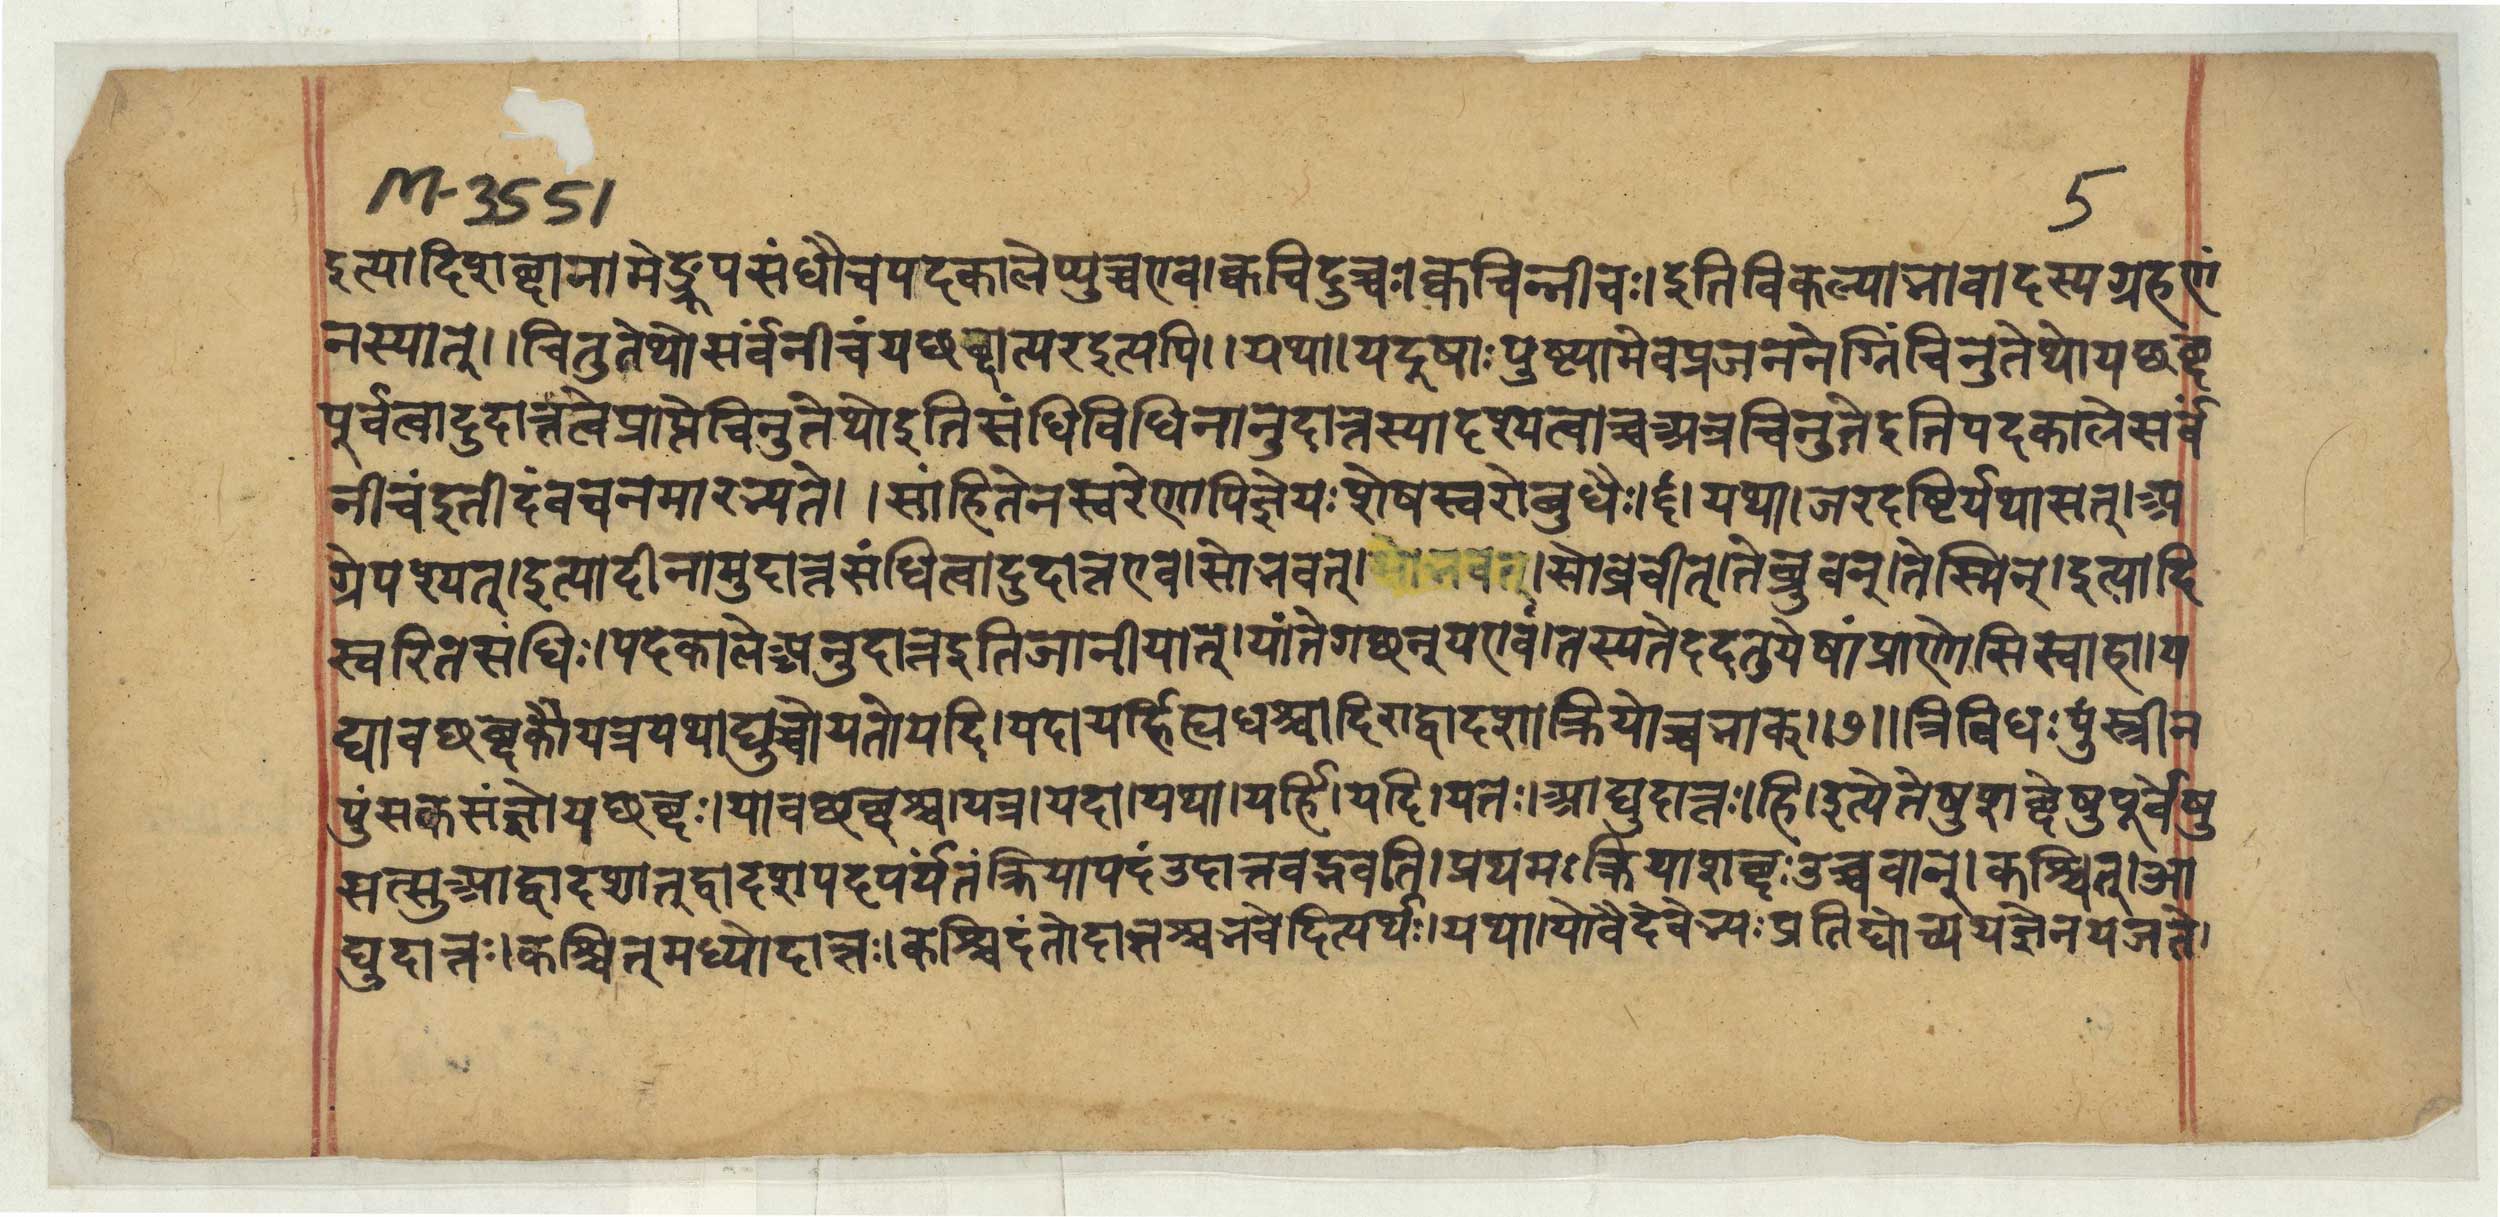 M-3551
5
इत्यादिशब्दानामेङ्रूपसंधौचपदकालेप्युच्चएव।क्वचिदुच्चः।क्वचिन्नीचः।इतिविकल्पाभावादस्यग्रहणं
नस्यात्।।चिनुतेथोसर्वंनीचंयछब्दात्परइत्यपि।।यथा।यदूषाःपुष्ट्यामेवप्रजननेग्निंचिनुतेथोयछब्द
पूर्वत्वादुदात्तत्वेप्राप्तेचिनुतेथोइतिसंधिविधिनानुदात्तस्यादृश्यत्वाच्चअत्रचिनुतेइतिपदकालेसर्वं
नीचंइतीदंवचनमारभ्यते।।सांहितेनस्वरेणापिज्ञेयःशेषस्वरोबुधैः।६।यथा।जरदष्टिर्यथासत्।अ
ग्रेपश्यत्।इत्यादीनामुदात्तसंधित्वादुदात्तएव।सोभवत्।सोभवत्।सोब्रवीत्।तेब्रुवन्।तेस्मिन्।इत्यादि
स्वरितसंधिः।पदकालेअनुदात्तइतिजानीयात्।यांतेगछन्यएवं।तस्यतेददतुयेषांप्राणोसिस्वाहा।य
द्यावछब्दकौयत्रयथाद्युच्चोयतोयदि।यदायर्हिह्यधश्चादिराद्वादशाक्रियोच्चभाक्।।७।।त्रिविधःपुंस्त्रीन
पुंसकसंज्ञोयछब्दः।यावछब्दश्च।यत्र।यदा।यथा।यर्हि।यदि।यतः।आद्युदात्तः।हि।इत्येतेषुशब्देषुपूर्वेषु
सत्सुआद्वादशात्द्वादशपदपर्यंतंक्रियापदंउदात्तवद्भवति।प्रथमःक्रियाशब्दःउच्चवान्।कश्चित्।आ
द्युदात्तः।कश्चित्मध्योदात्तः।कश्चिदंतोदात्तश्चभवेदित्यर्थः।यथा।योवैदेवेभ्यःप्रतिप्रोच्ययज्ञेनयजते।